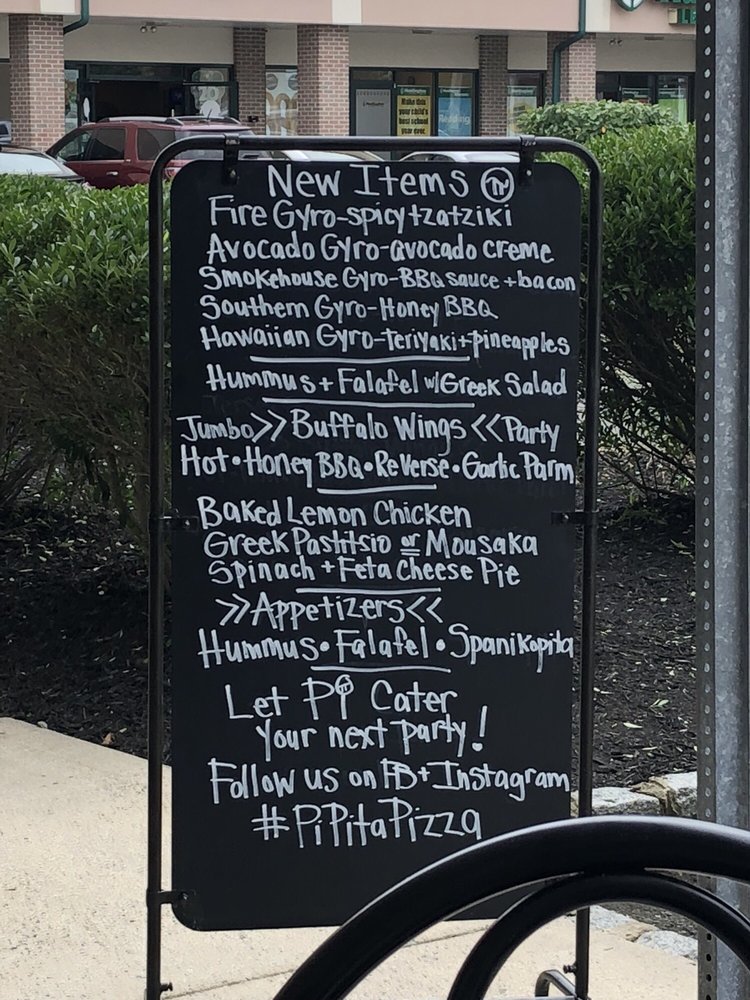 Make this your child's best school year ever.
Reading
New Items
Fire Gyro-spicy tzatziki
Avocado Gyro-avocado creme
Smokehouse Gyro-BBQ sauce + bacon
Southern Gyro-Honey BBQ
Hawaiian Gyro-teriyaki+pineapples
Hummus + Falafel w/Greek Salad
Jumbo >> Buffalo Wings << Party
Hot • Honey BBQ • Reverse • Garlic Parm
Baked Lemon Chicken
Greek Pastitsio or Mousaka
Spinach + Feta Cheese Pie
>>Appetizers<<
Hummus • Falafel • Spanikopita
Let Pi Cater
your next party!
Follow us on FB + Instagram
#PiPitaPizza